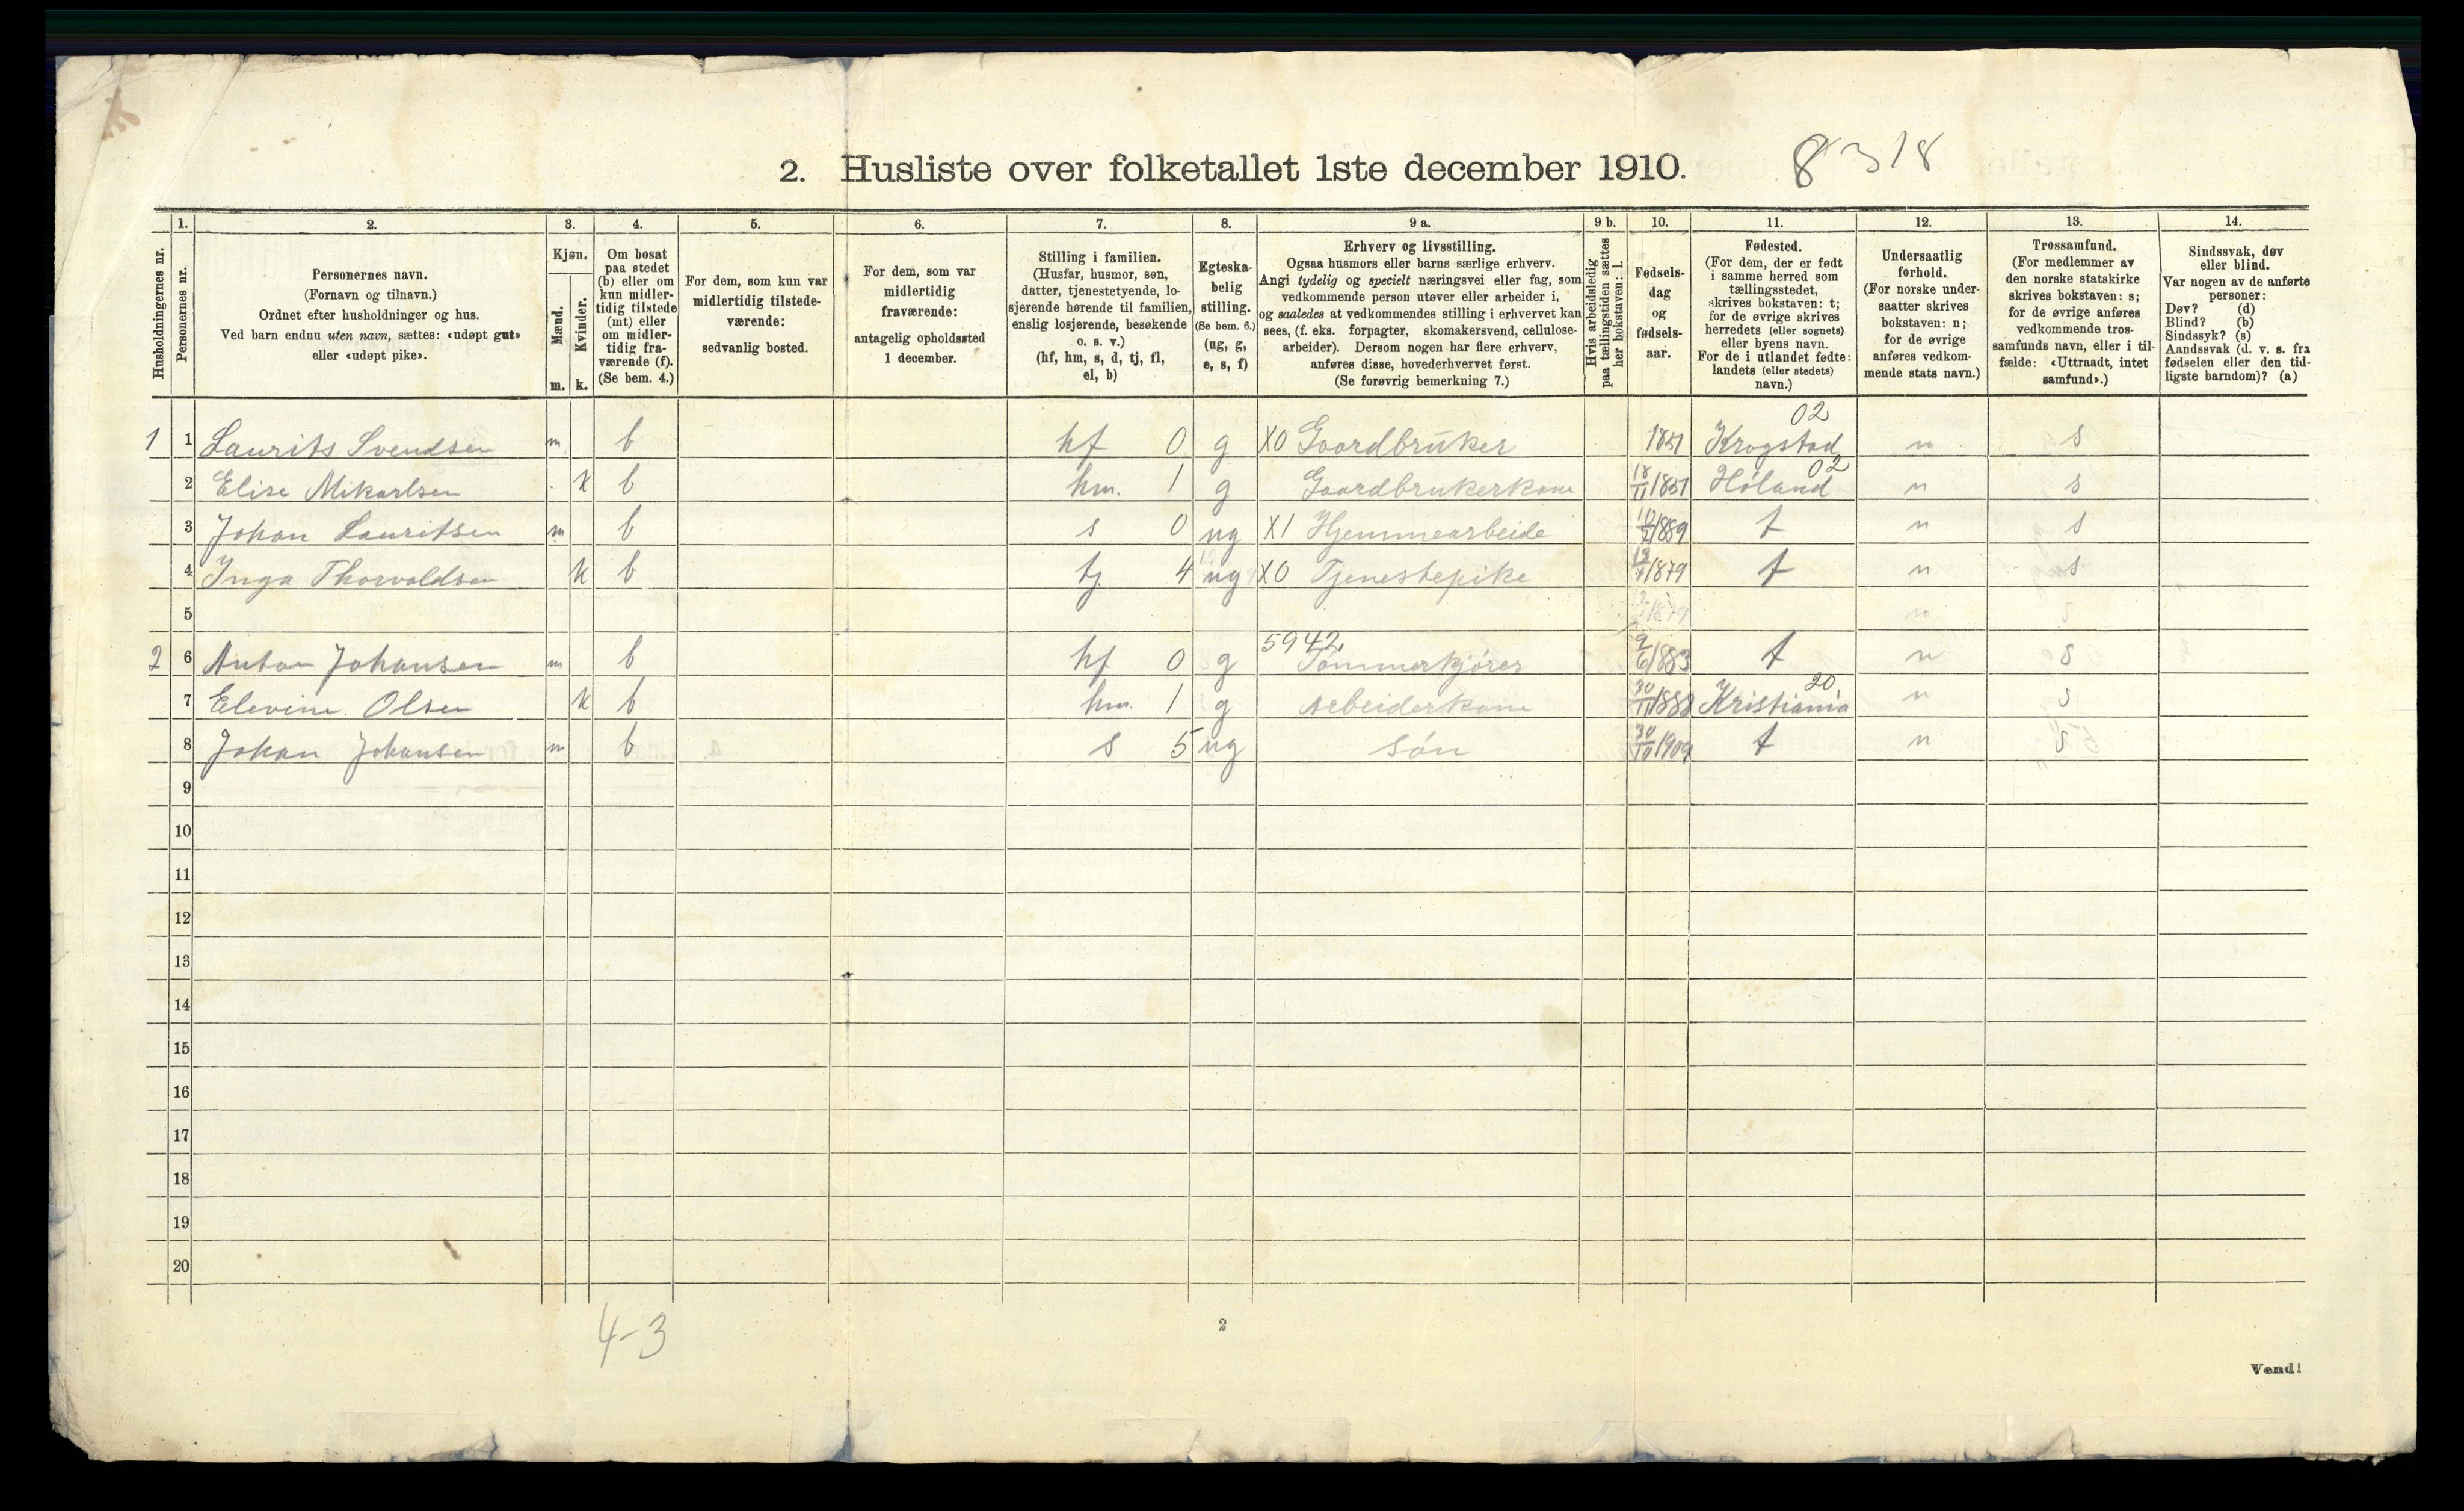 2. Husliste over folketallet 1ste december 1910. 8318
Husholdningernes nr.
1.
Personernes nr.
2.
Personernes navn.
(Fornavn og tilnavn.)
Ordnet efter husholdninger og hus.
Ved barn endnu uten navn, sættes: «udøpt gut»
eller «udøpt pike».
3.
Kjøn.
Mænd.
m.
Kvinder.
k.
4.
Om bosat
paa stedet
(b) eller om
kun midler-
tidig tilstede
(mt) eller
om midler-
tidig fra-
værende (f).
(Se bem. 4.)
5.
For dem, som kun var
midlertidig tilstede-
værende:
sedvanlig bosted.
6.
For dem, som var
midlertidig
fraværende:
antagelig opholdssted
1 december.
7.
Stilling i familien.
(Husfar, husmor, søn,
datter, tjenestetyende, lo-
sjerende hørende til familien,
enslig losjerende, besøkende
o. s. v.)
(hf, hm, s, d, tj, fl,
el, b)
8.
Egteska-
belig
stilling.
(Se bem. 6.)
(ug, g,
e, s, f)
9 a.
Erhverv og livsstilling.
Ogsaa husmors eller barns særlige erhverv.
Angi tydelig og specielt næringsvei eller fag, som
vedkommende person utøver eller arbeider i,
og saaledes at vedkommendes stilling i erhvervet kan
sees, (f. eks. forpagter, skomakersvend, cellulose-
arbeider). Dersom nogen har flere erhverv,
anføres disse, hovederhvervet først.
(Se forøvrig bemerkning 7.)
9 b.
Hvis arbeidsledig
paa tællingstiden sættes
her bokstaven: l.
10.
Fødsels-
dag
og
fødsels-
aar.
11.
Fødested.
(For dem, der er født
i samme herred som
tællingsstedet,
skrives bokstaven: t;
for de øvrige skrives
herredets (eller sognets)
eller byens navn.
For de i utlandet fødte:
landets (eller stedets)
navn.)
12.
Undersaatlig
forhold.
(For norske under-
saatter skrives
bokstaven: n;
for de øvrige
anføres vedkom-
mende stats navn.)
13.
Trossamfund.
(For medlemmer av
den norske statskirke
skrives bokstaven: s;
for de øvrige anføres
vedkommende tros-
samfunds navn, eller i til-
fælde: «Uttraadt, intet
samfund».)
14.
Sindssvak, døv
eller blind.
Var nogen av de anførte
personer:
Døv? (d)
Blind? (b)
Sindssyk? (s)
Aandssvak (d. v. s. fra
fødselen eller den tid-
ligste barndom)? (a)
02
1 1 Laurits Svendsen m b hf 0 g X0 Gaardbruker 1851 Krogstad n s
02
2 Elise Mikarlsen k b hm. 1 g Gaardbrukerkone 18/11 1851 Høland n s
3 Johan Lauritsen m b s 0 ug X1 Hjemmearbeide 1889 t n s
4 Inga Thorvaldsen k b tj 4 ug X0 Tjenestepike 1879 t n s
5 1879 n s
5942
2 6 Anton Johansen m b hf 0 g Tømmerkjører 9/6 1883 t n s
20
7 Elevine Olsen k b hm. 1 g Arbeiderkone 30/11 1888 Kristiania n s
8 Johan Johansen m b s 5 ug søn 30/10 1909 t n s
9
10
11
12
13
14
15
16
17
18
19
20
4-3
2
Vend!